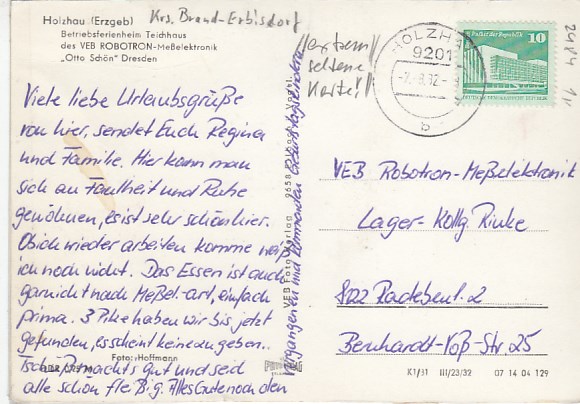 Holzhau (Erzgeb)
Betriebsferienheim Teichhaus
des VEB ROBOTRON-Meßelektronik
„Otto Schön" Dresden
Krs. Brand-Erbisdorf
extrem
seltene
Karte!
HOLZHAU
9201
b
Palast der Republik
10
DEUTSCHE DEMOKRATISCHE REPUBLIK
2484
Viele liebe Urlaubsgrüße
von hier, sendet Euch Regina
und Familie. Hier kann man
sich an Faulheit und Ruhe
gewöhnen, es ist sehr schön hier.
Ob ich wieder arbeiten komme weiß
ich noch nicht. Das Essen ist auch
garnicht nach Meßel.-art, einfach
prima. 3 Pilze haben wir bis jetzt
gefunden, es scheint keine zu geben.
Tschüß machts gut und seid
alle schön fleißig. Alles Gute noch den
vergangenen und kommenden Geburtstagskindern
Foto: Hoffmann
VEB Foto-Verlag
9658
VEB Robotron-Meßelektronik
Lager-Kollg. Rinke
8122 Radebeul 2
Bernhardt-Voß-Str. 25
K1/81 III/23/32 07 14 04 129